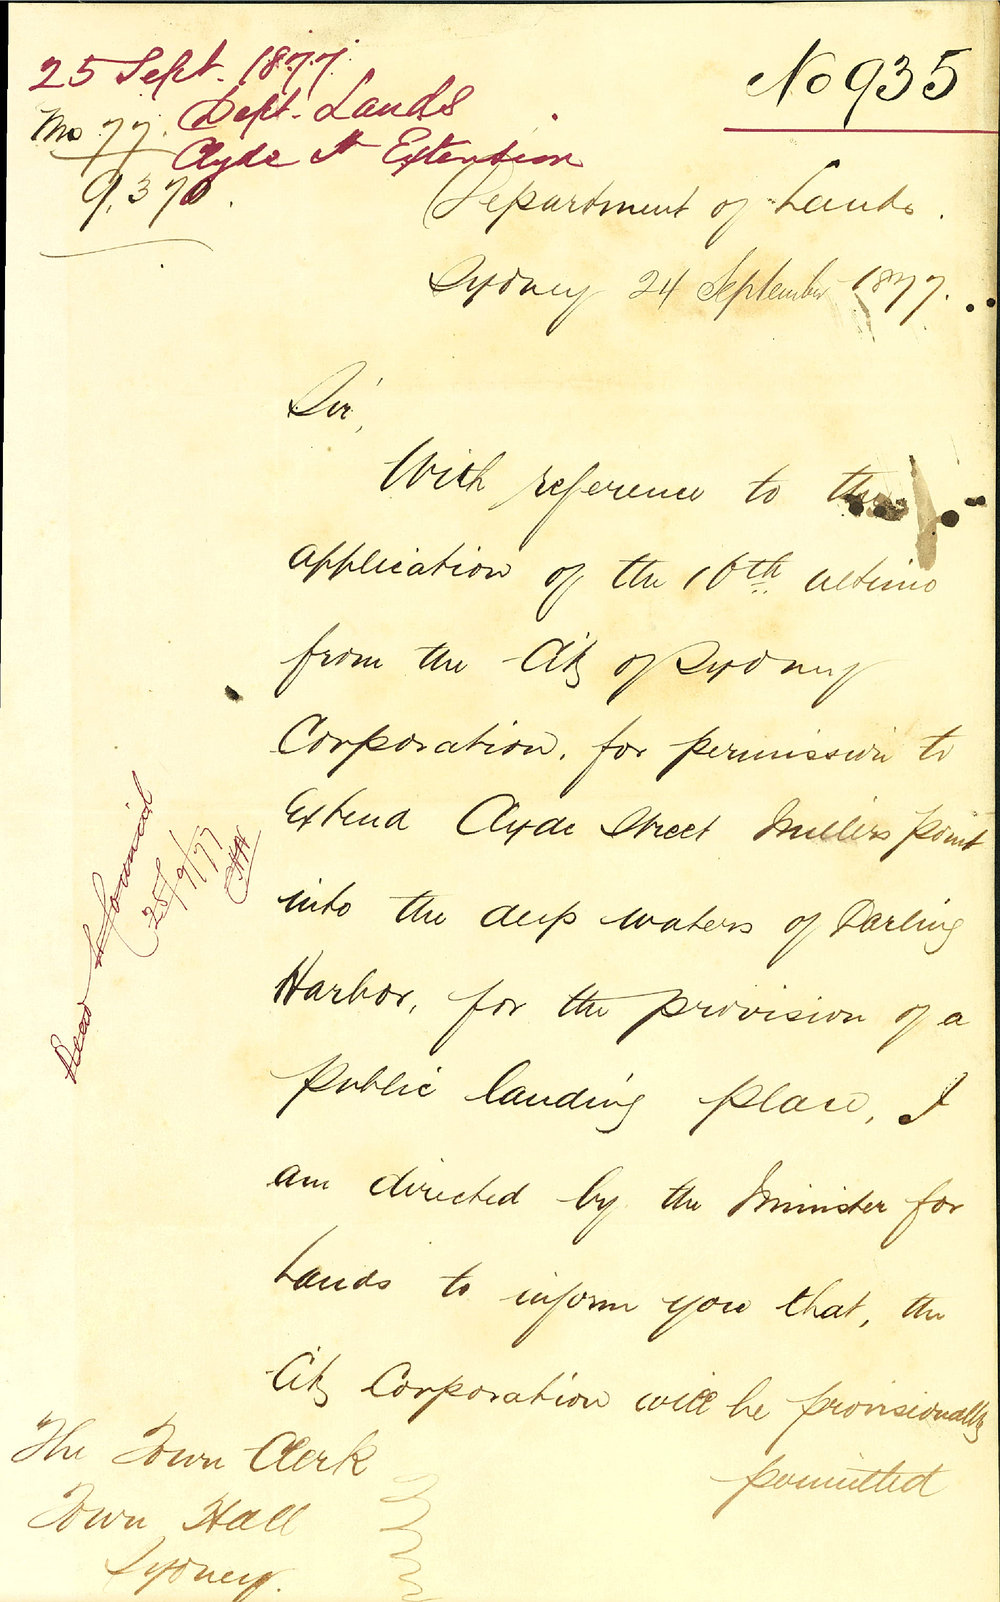 25 Sept. 1877.
Dept. Lands
Clyde St Extention
77.
9,370.
No 935
Department of Lands.
Sydney 24 September 1877.
Sir,
With reference to the
application of the 16th ultimo
from the City of Sydney
Corporation, for permission to
Extend Clyde Street Millers point
into the deep waters of Darling
Harbor, for the provision of a
public landing place, I
am directed by the Minister for
Lands to inform you that, the
City Corporation will be provisionally
permitted
The Town Clerk
Town Hall
Sydney.
Read Council
25/9/77